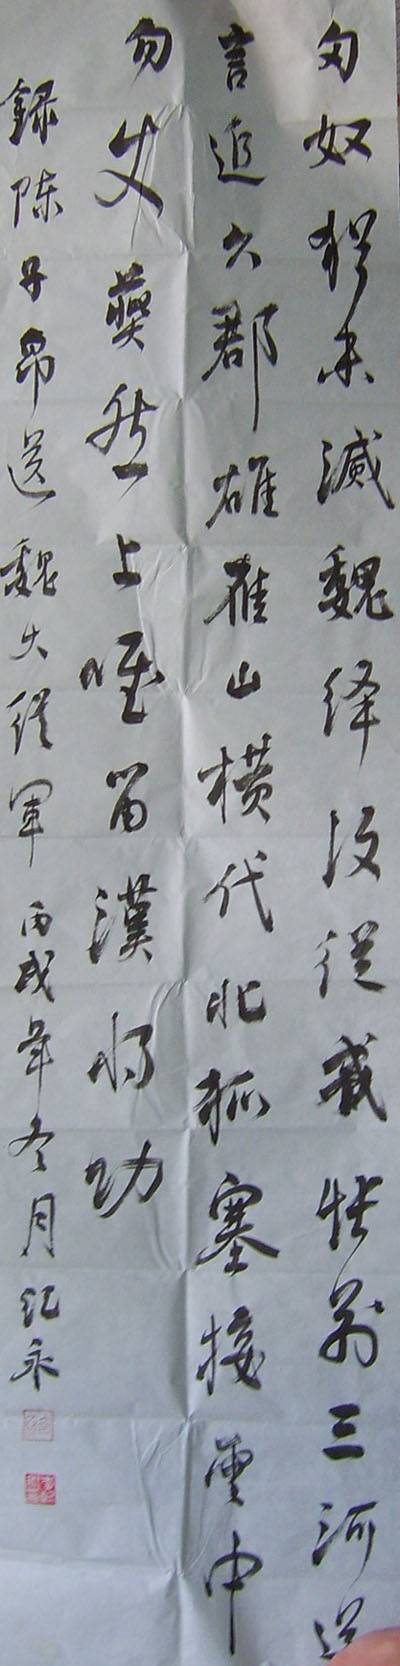 匈奴猶未滅魏絳復從戎悵別三河道
言追六郡雄雁山橫代北狐塞接雲中
勿使燕然上唯留漢將功
錄陈子昂送魏大從軍丙戌年冬月纪永